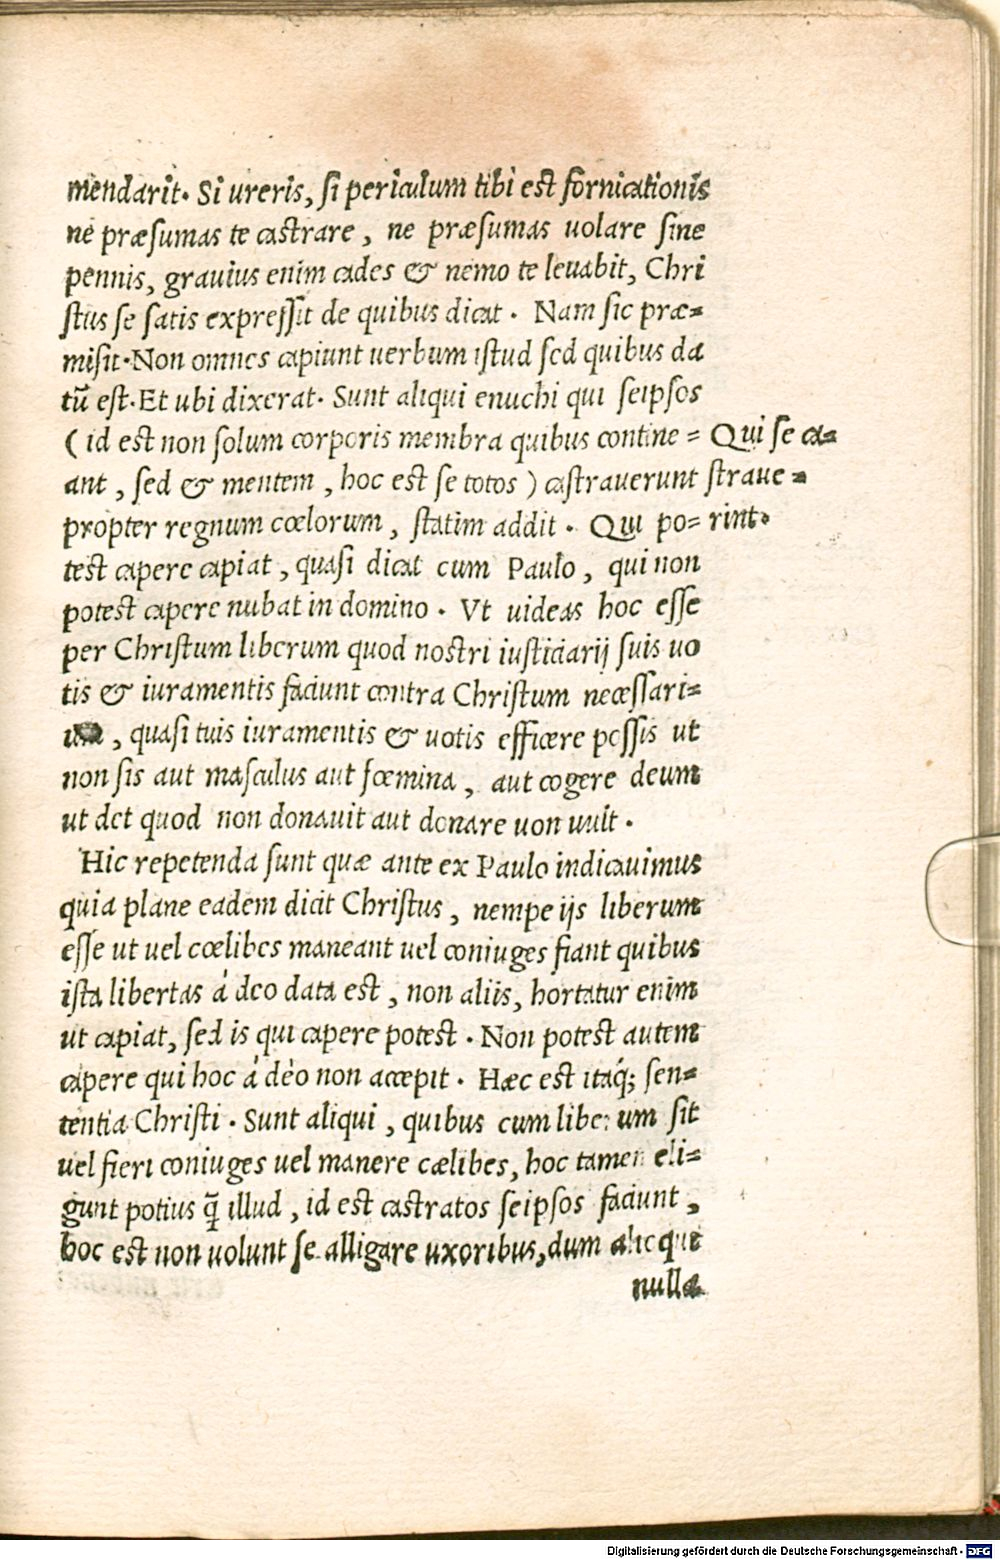 mendarit. Si ureris, si periculum tibi est fornicationis
ne præsumas te castrare, ne præsumas uolare sine
pennis, grauius enim cades & nemo te leuabit, Chri
stus se satis expressit de quibus dicat. Nam sic præ=
misit. Non omnes capiunt uerbum istud sed quibus da
tū est. Et ubi dixerat. Sunt aliqui enuchi qui seipsos
(id est non solum corporis membra quibus contine=
ant, sed & mentem, hoc est se totos) castrauerunt
propter regnum cœlorum, statim addit. Qui po=
Qui se ca=
straue=
rint.
test capere capiat, quasi dicat cum Paulo, qui non
potest capere nubat in domino. Vt uideas hoc esse
per Christum liberum quod nostri iusticiarij suis uo
tis & iuramentis faciunt contra Christum necessari=
, quasi tuis iuramentis & uotis efficere possis ut
non sis aut masculus aut fœmina, aut cogere deum
ut det quod non donauit aut donare uon uult.
Hic repetenda sunt quæ ante ex Paulo indicauimus
quia plane eadem dicit Christus, nempe ijs liberum
esse ut uel cœlibes maneant uel coniuges fiant quibus
ista libertas á deo data est, non aliis, hortatur enim
ut capiat, sed is qui capere potest. Non potest autem
capere qui hoc á deo non accepit. Hæc est itaq́; sen=
tentia Christi. Sunt aliqui, quibus cum liberum sit
uel fieri coniuges uel manere cælibes, hoc tamen eli=
gunt potius q̄ illud, id est castratos seipsos faciunt,
hoc est non uolunt se alligare uxoribus, dum alicque
nulla
Digitalisierung gefördert durch die Deutsche Forschungsgemeinschaft - DFG